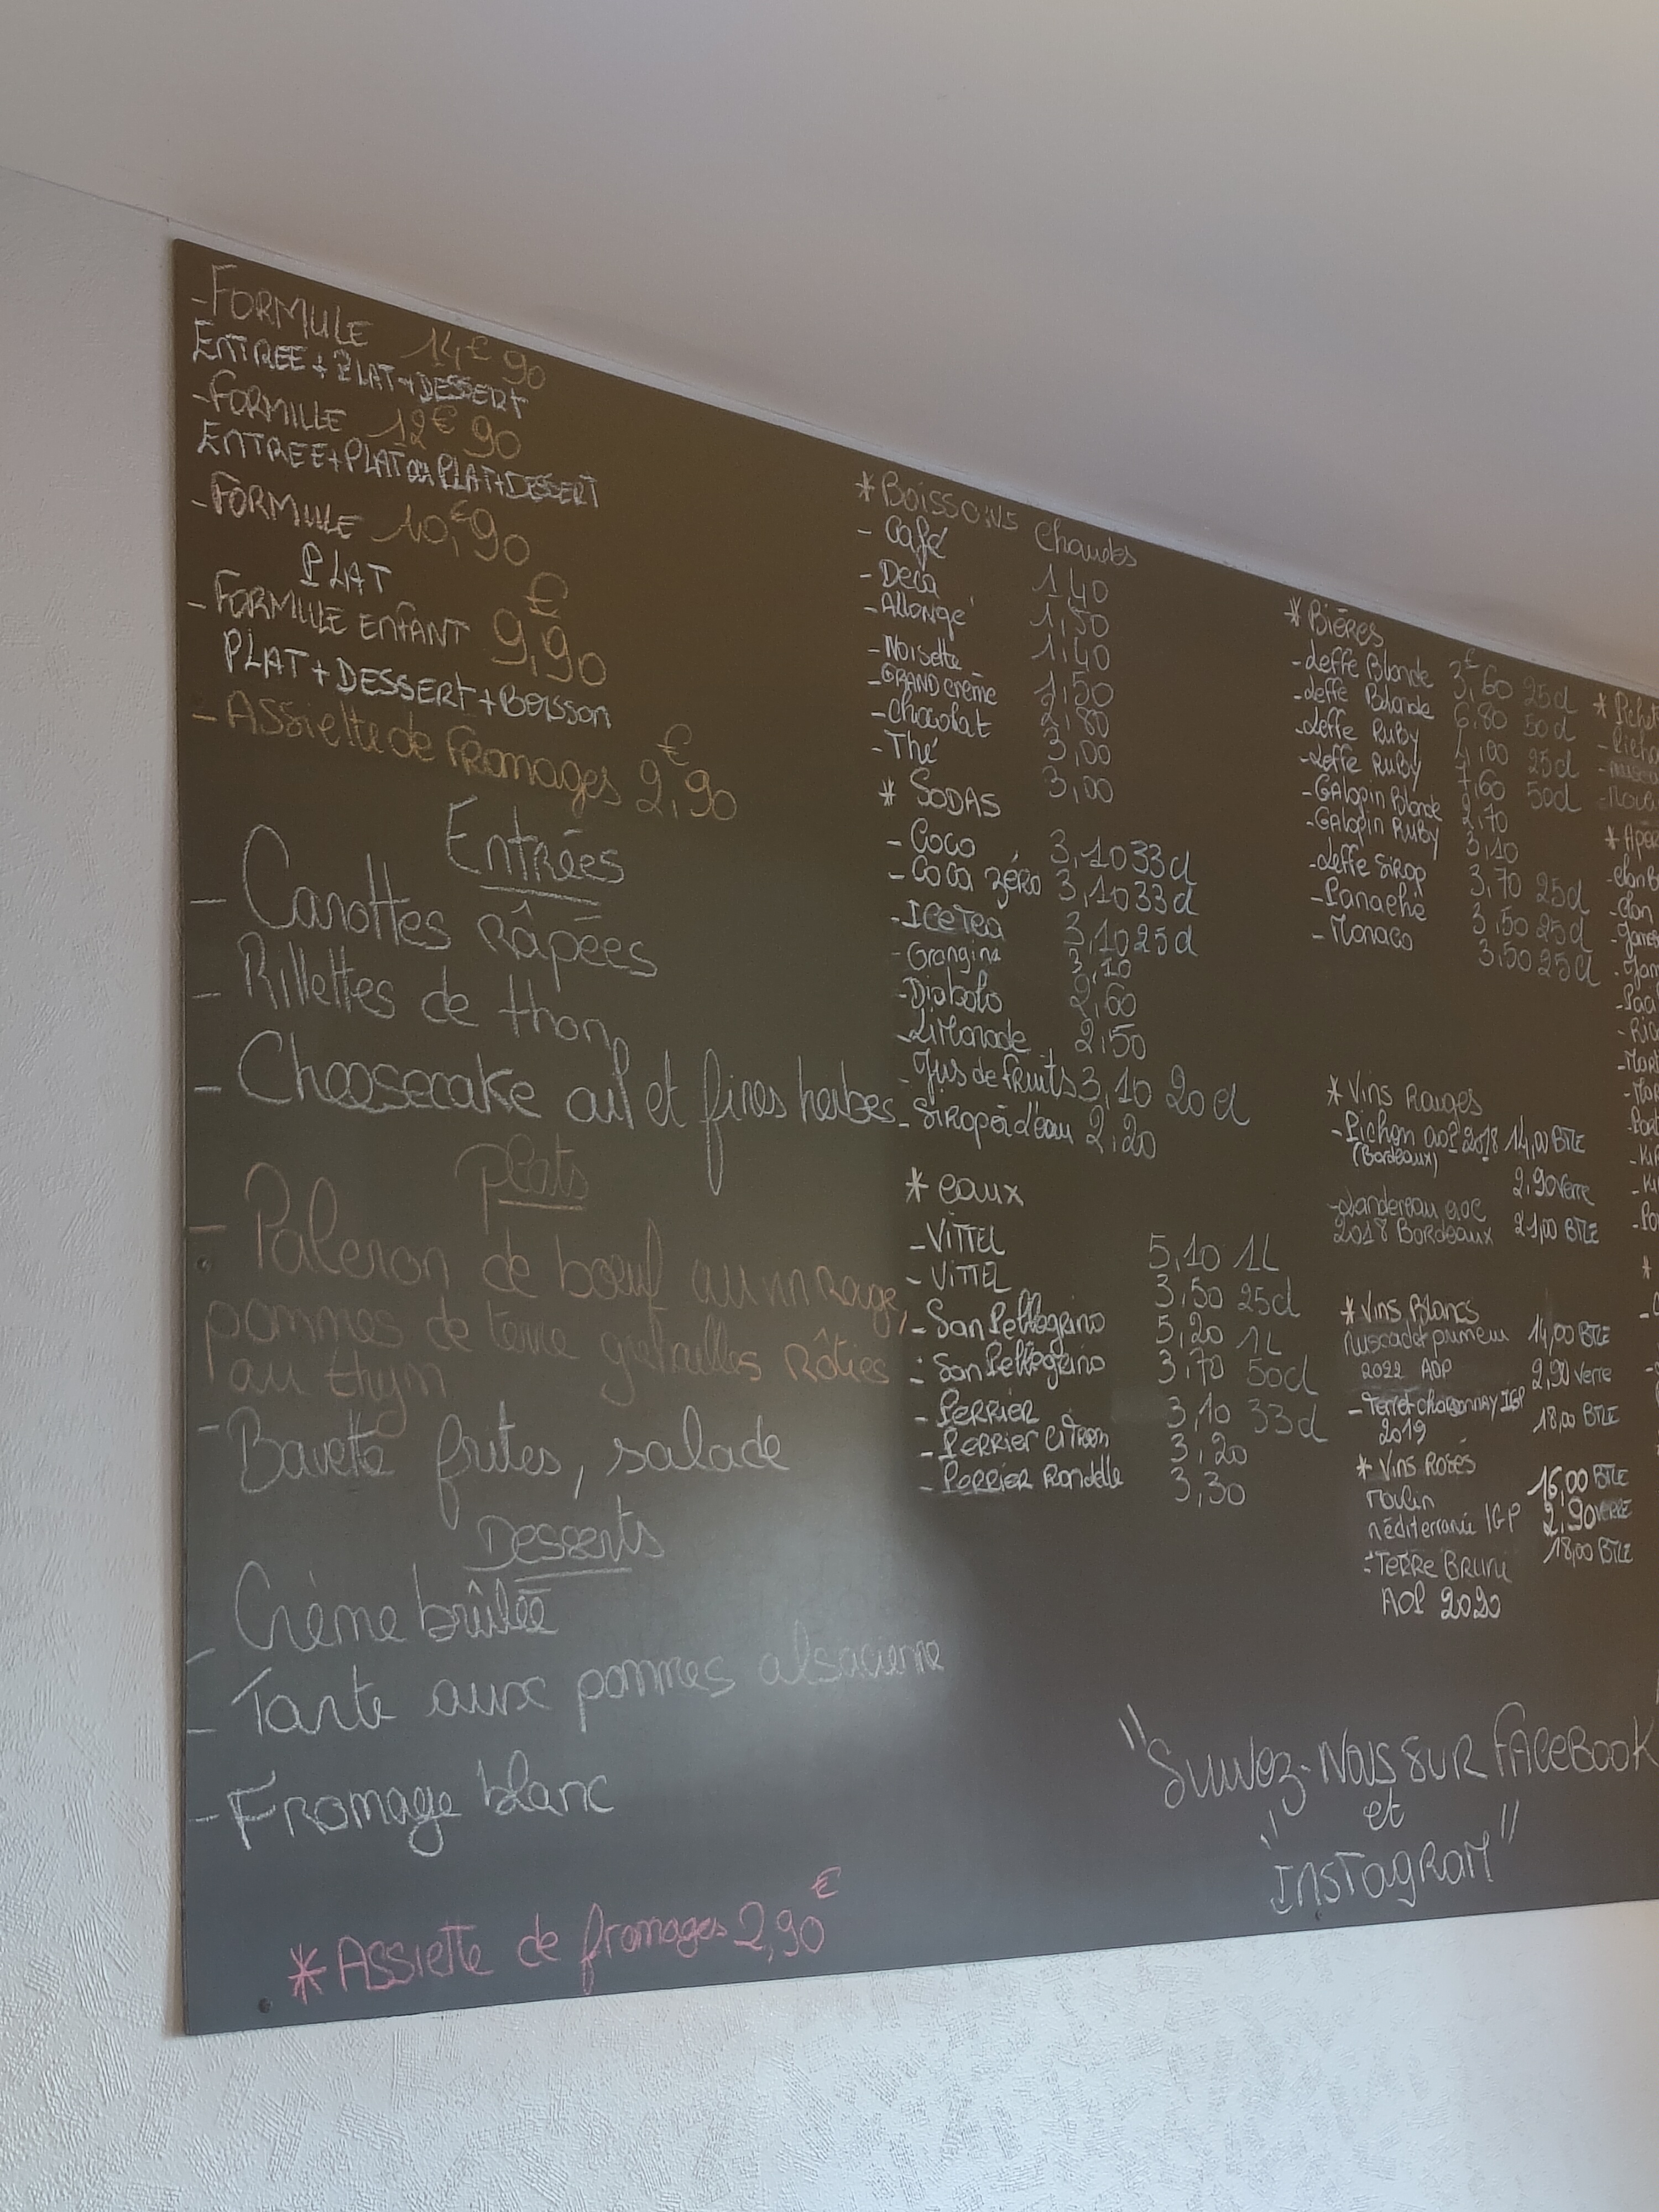 - FORMULE 14€90
ENTREE + PLAT + DESSERT
- FORMILLE 12€90
ENTREE + PLAT ou PLAT + DESSERT
- FORMULE 10,€90
PLAT
- FORMULE ENFANT 9,€90
PLAT + DESSERT + BOISSON
- Assiette de Fromages 2,€90
Entrées
- Carottes Râpées
- Rillettes de thon
- Cheesecake ail et fines herbes
Plats
- Paleron de bœuf au vin Rouge,
pommes de terre grenailles Rôties
au thym
- Bavette frites, salade
Desserts
- Crème brûlée
- Tarte aux pommes alsacienne
- Fromage blanc
* Assiette de fromages 2,90€
* Boissons Chaudes
- Café 1,40
- Deca 1,50
- Allongé 1,40
- Noisette 1,50
- GRAND crème 2,80
- Chocolat 3,00
- Thé 3,00
* SODAS
- Coca 3,10 33cl
- Coca zéro 3,10 33cl
- ICE Tea 3,10 25cl
- Orangina 3,10
- Diabolo 2,60
- Limonade 2,50
- Jus de fruits 3,10 20cl
- Sirop à l'eau 2,20
* eaux
- VITTEL 5,10 1L
- VITTEL 3,50 25cl
- San Pellegrino 5,20 1L
- San Pellegrino 3,70 50cl
- PERRIER 3,10 33cl
- PERRIER CITRON 3,20
- PERRIER Rondelle 3,30
* Bières
- Leffe Blonde 3€,60 25cl
- Leffe Blonde 6,80 50cl
- Leffe Ruby 4,00 25cl
- Leffe Ruby 7,60 50cl
- GAlopin Blonde 2,70
- GAlopin RUBY 3,10
- Leffe Sirop 3,70 25cl
- Panaché 3,50 25cl
- Monaco 3,50 25cl
* Vins Rouges
- Pichon aoP 2018 14,00 BTLE
(Bordeaux)
2,90 verre
- Landereau aoc
2018 Bordeaux 21,00 BTLE
* Vins Blancs
Muscadet primeur 14,00 BTLE
2022 AOP 2,90 verre
- Terret chardonnay IGP
2019 18,00 BTLE
* Vins Rosés
Moulin 16,00 BTLE
méditerranée IGP 2,90 VERRE
- TERRE BRUNE 18,00 BTLE
AOP 2020
"Suivez-Nous SUR FACEBOOK
et
"INSTAGRAM"